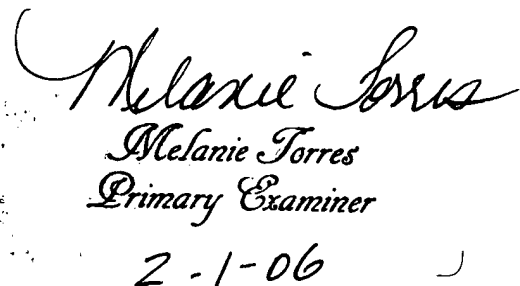 Melanie Torres
Melanie Torres
Primary Examiner
2-1-06